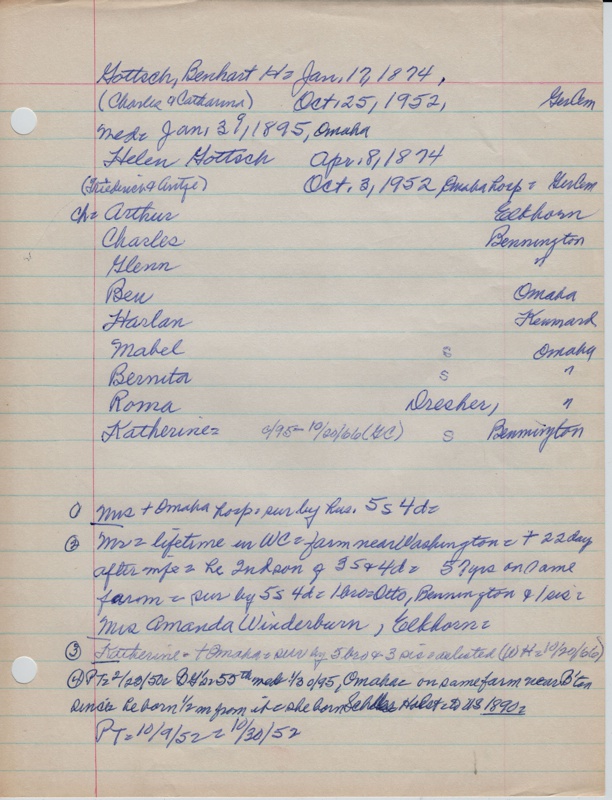 Gottsch, Benhart H = Jan. 17, 1874,
(Charles & Catharina) Oct. 25, 1952,
med = Jan. 39, 1895, Omaha
Helen Gottsch Apr. 8, 1874
(Friederich & Antje) Oct. 3, 1952 Omaha hosp =
ch = Arthur Elkhorn
Charles Bennington
Glenn "
Ben Omaha
Harlan Kennard
Mabel s Omaha
Bernita s "
Roma Dresher, "
Katherine = /95 = 10/20/66 (GC) s Bennington
① Mrs + Omaha hosp = sur by hus. 5s 4d =
② Mr = lifetime in WC = farm near Washington = + 22 day
after mfe = he 2nd son of 3s & 4d = 57 yrs on same
farm = sur by 5s 4d = 1 bro = Otto, Bennington & 1 sis =
Mrs Amanda Winderburn, Elkhorn =
③ Katherine = + Omaha = sur by 5 bro & 3 sis = as listed (WH = 10/20/66)
④ PT = 2/23/50 = 55th med = 1/30/95, Omaha = on same farm near B'ton
since he born ½ m from it = she born Holst = to US 1890 =
PT = 10/9/52 = 10/30/52